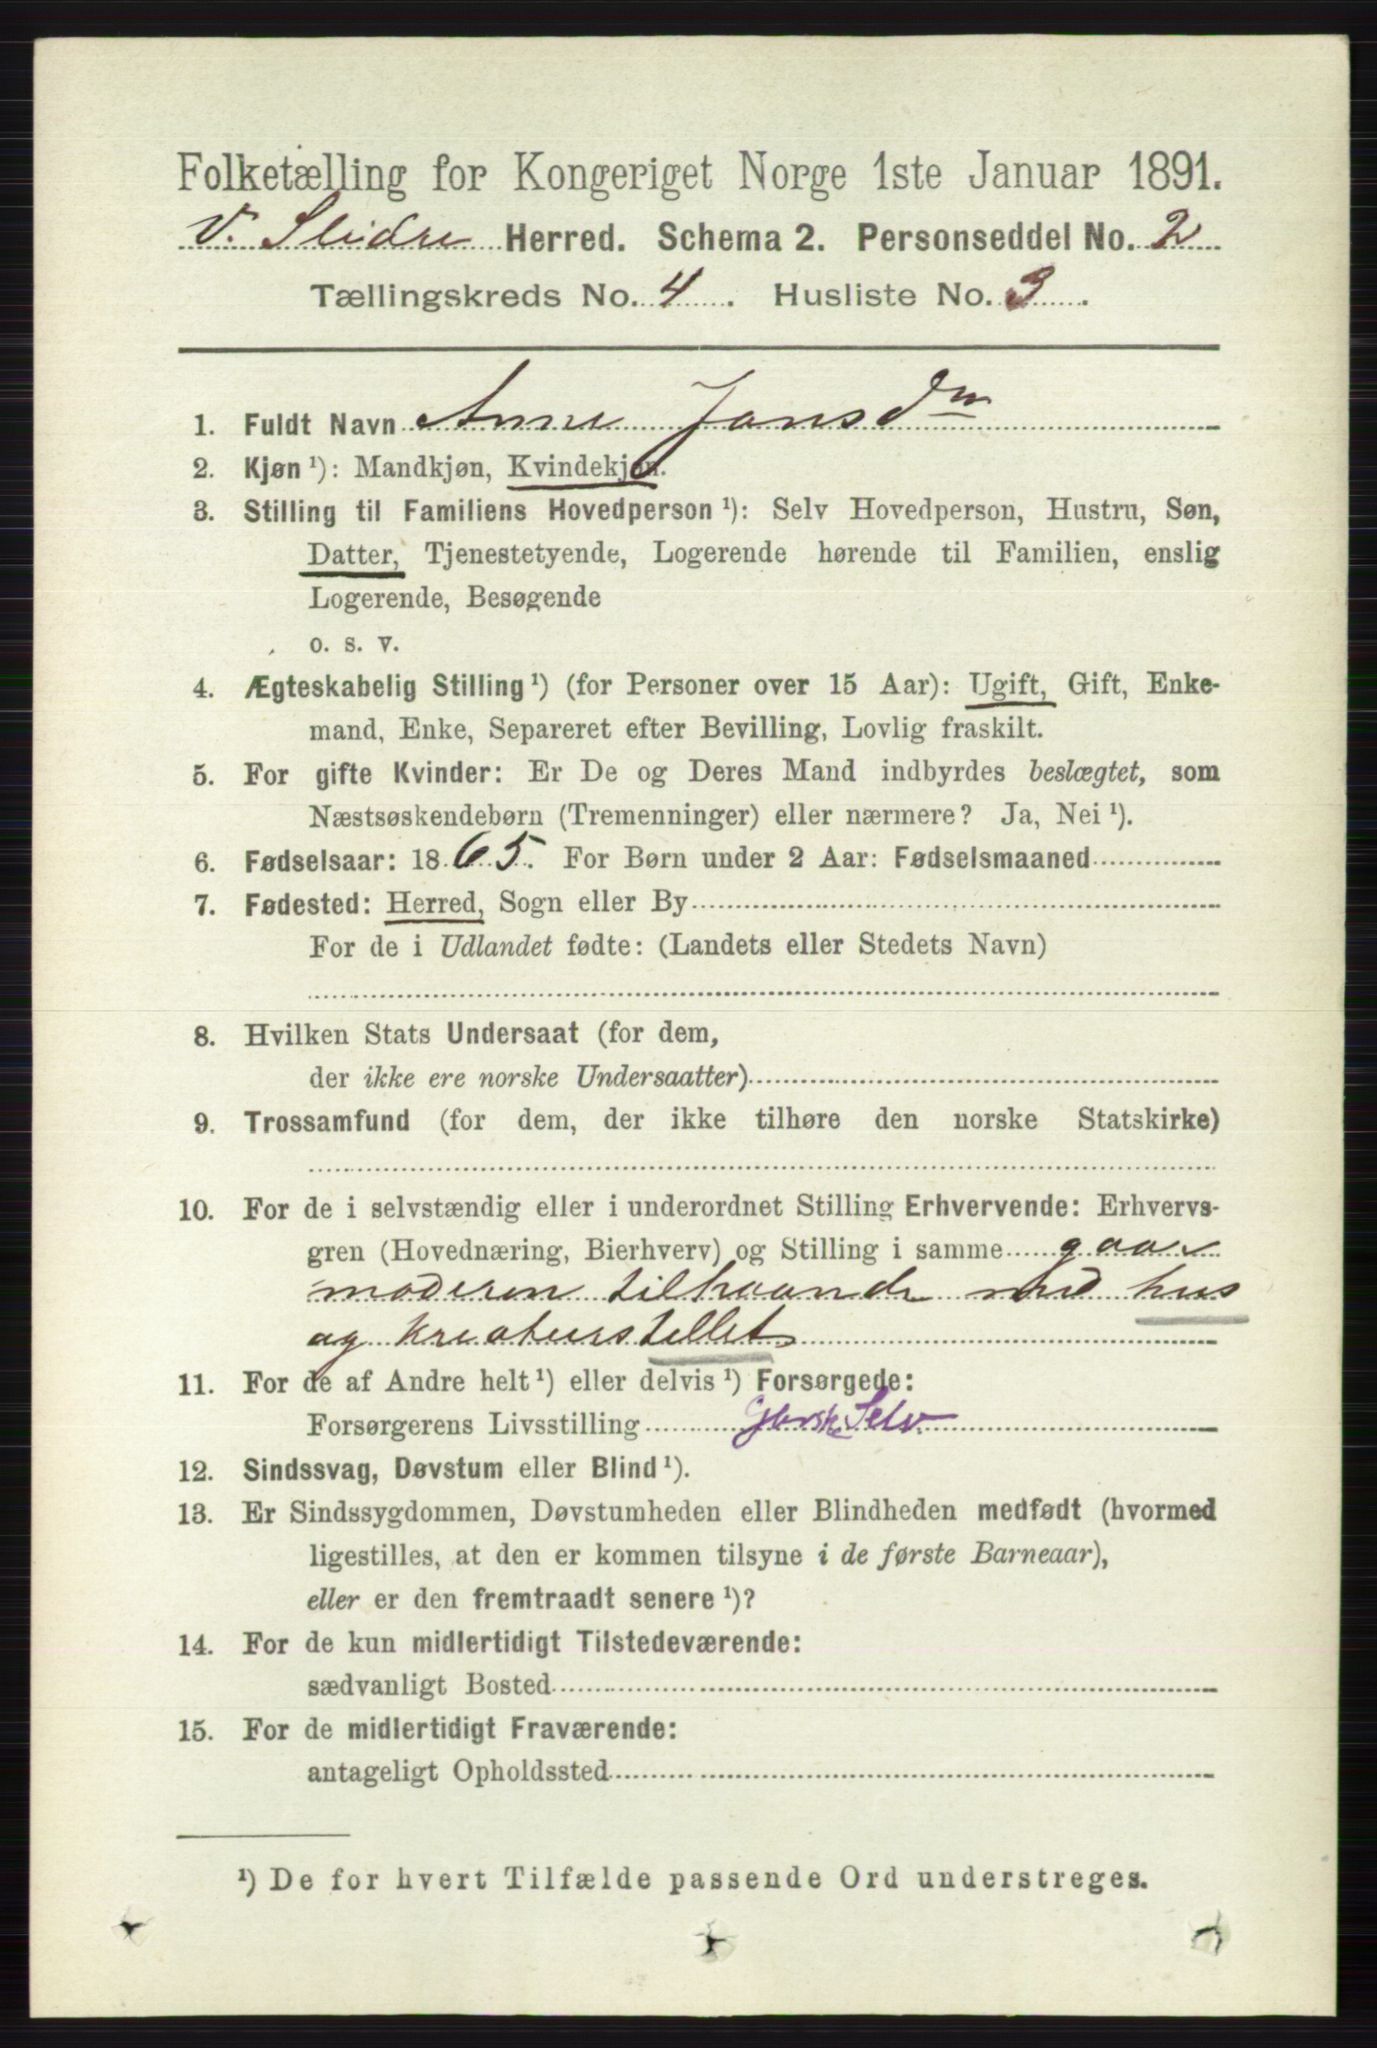 Folketælling for Kongeriget Norge 1ste Januar 1891.
V. Slidre Herred. Schema 2. Personseddel No. 2
Tællingskreds No. 4. Husliste No. 3.
1. Fuldt Navn Anne Jansdtr
2. Kjøn ¹): Mandkjøn, Kvindekjøn.
3. Stilling til Familiens Hovedperson ¹): Selv Hovedperson, Hustru, Søn,
Datter, Tjenestetyende, Logerende hørende til Familien, enslig
Logerende, Besøgende
o. s. v.
4. Ægteskabelig Stilling ¹) (for Personer over 15 Aar): Ugift, Gift, Enke-
mand, Enke, Separeret efter Bevilling, Lovlig fraskilt.
5. For gifte Kvinder: Er De og Deres Mand indbyrdes beslægtet, som
Næstsøskendebørn (Tremenninger) eller nærmere? Ja, Nei ¹).
6. Fødselsaar: 1865. For Børn under 2 Aar: Fødselsmaaned
7. Fødested: Herred, Sogn eller By
For de i Udlandet fødte: (Landets eller Stedets Navn)
8. Hvilken Stats Undersaat (for dem,
der ikke ere norske Undersaatter)
9. Trossamfund (for dem, der ikke tilhøre den norske Statskirke)
10. For de i selvstændig eller i underordnet Stilling Erhvervende: Erhvervs-
gren (Hovednæring, Bierhverv) og Stilling i samme gaar
moderen tilhaande med hus
og kreaturstellet
11. For de af Andre helt ¹) eller delvis ¹) Forsørgede:
Forsørgerens Livsstilling Selv.
12. Sindssvag, Døvstum eller Blind ¹).
13. Er Sindssygdommen, Døvstumheden eller Blindheden medfødt (hvormed
ligestilles, at den er kommen tilsyne i de første Barneaar),
eller er den fremtraadt senere ¹)?
14. For de kun midlertidigt Tilstedeværende:
sædvanligt Bosted
15. For de midlertidigt Fraværende:
antageligt Opholdssted
¹) De for hvert Tilfælde passende Ord understreges.